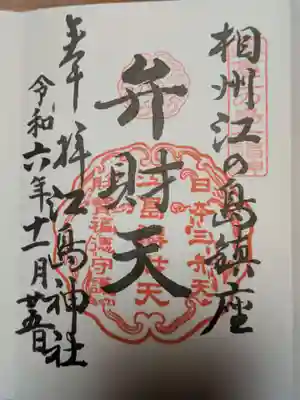 相州江の島鎮座
弁財天
奉拝 江島神社
令和六年十一月廿五日
日本三弁天
江島弁財天